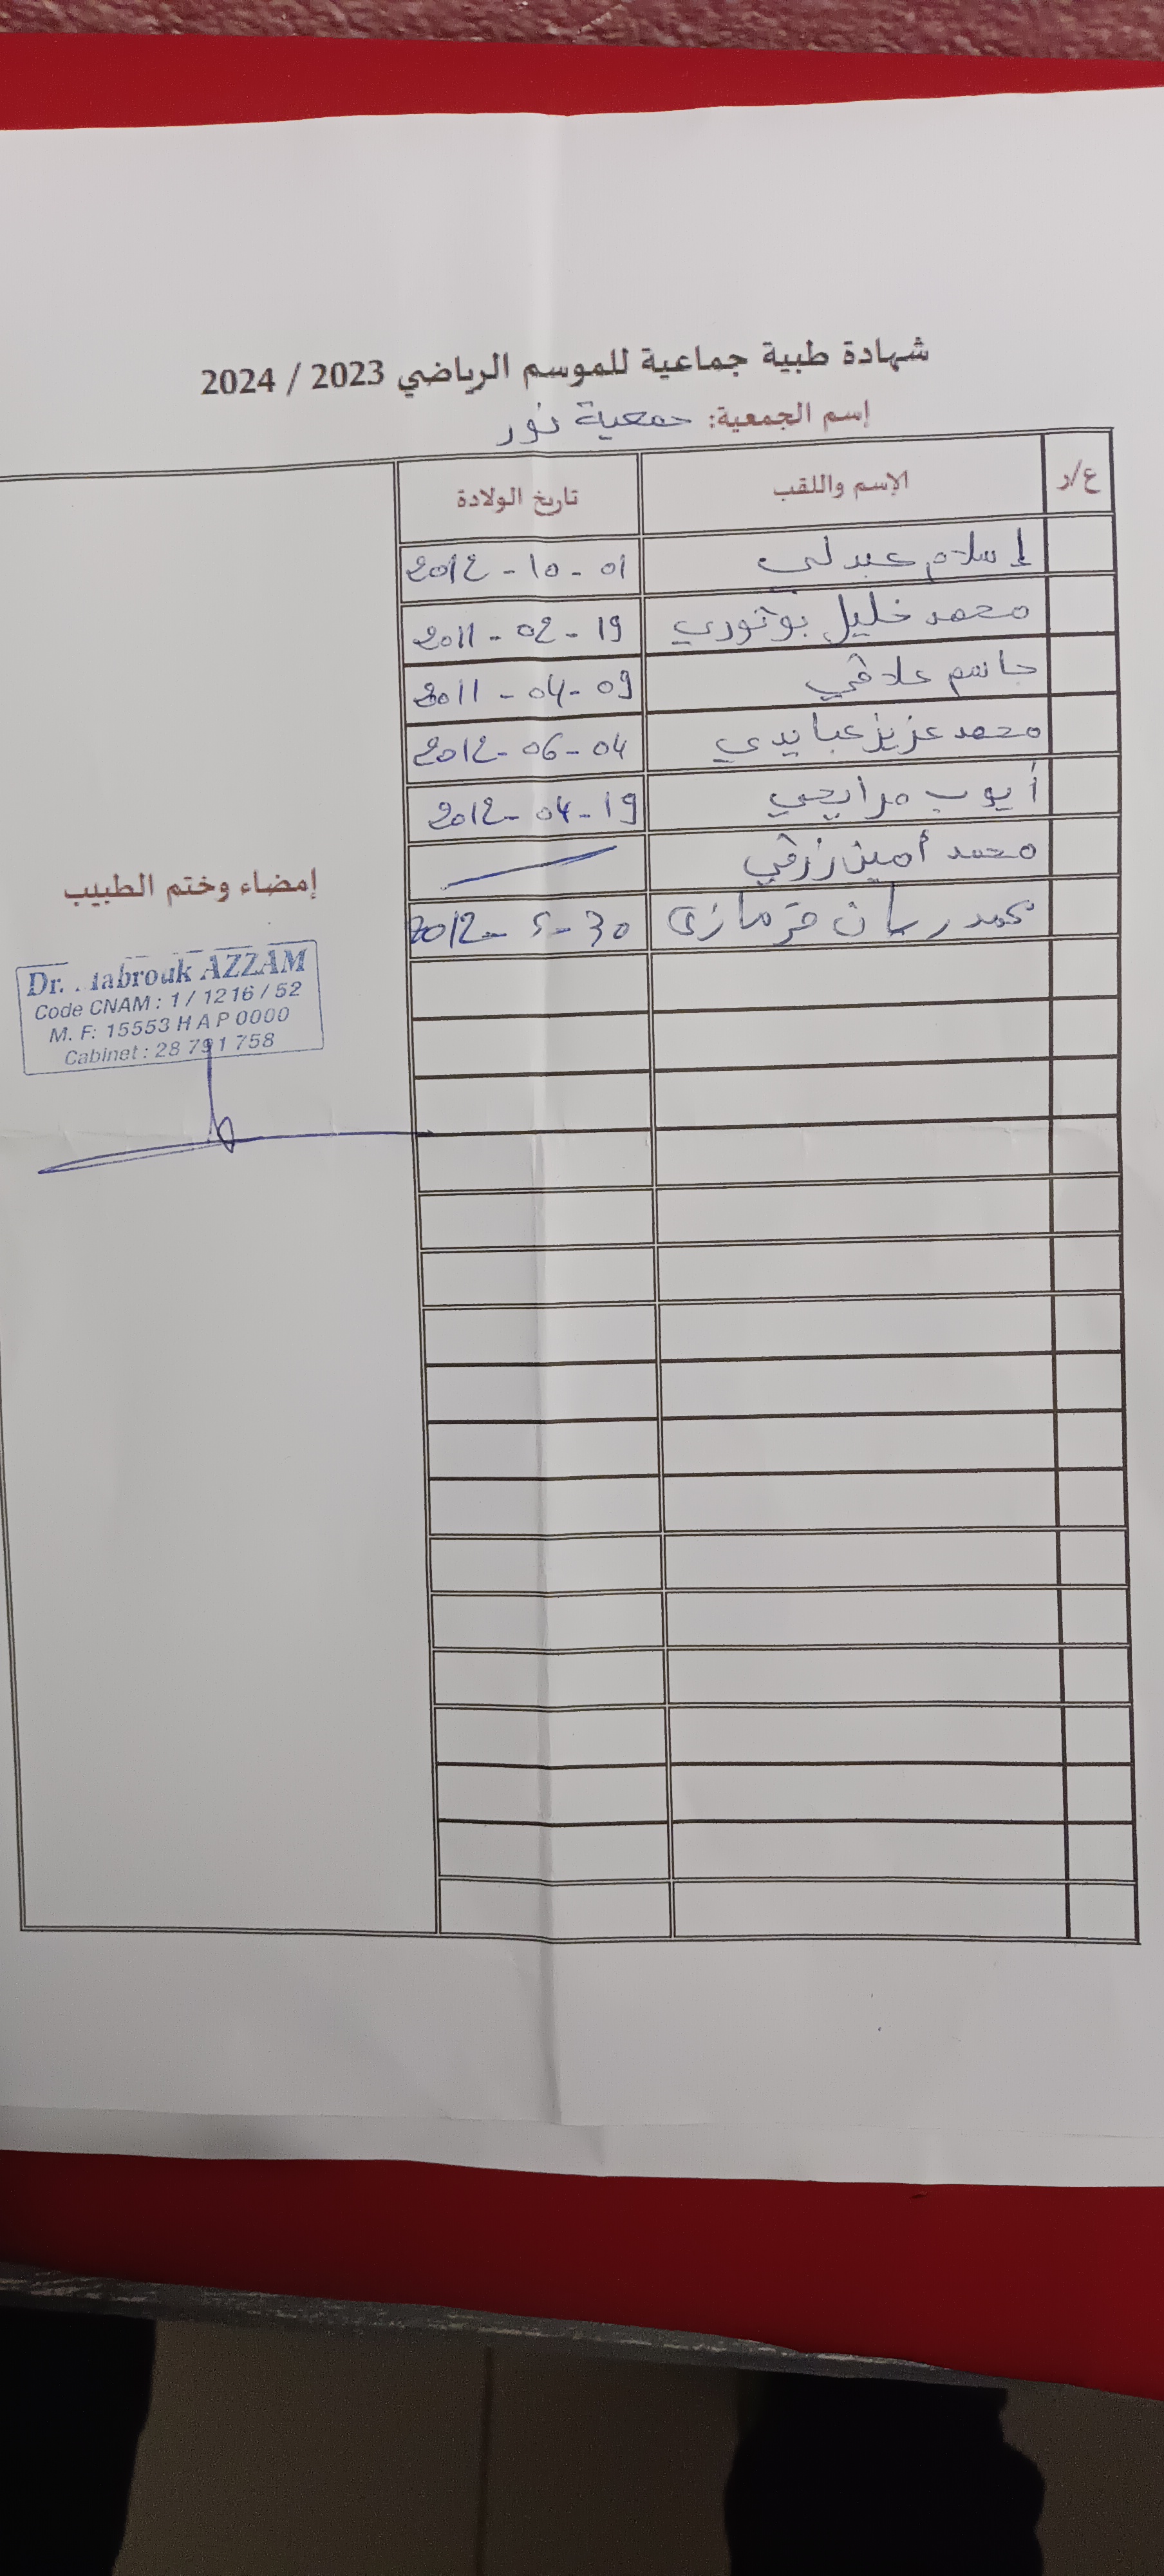 شهادة طبية جماعية للموسم الرياضي 2023 / 2024
إسم الجمعية: جمعية نور
ع/ر الإسم واللقب تاريخ الولادة
إسلام عبدلي 2012 - 10 - 01
محمد خليل بوثوري 2011 - 02 - 19
جاسم علاقي 2011 - 04 - 09
محمد عزيز عبايدي 2012 - 06 - 04
أيوب مرايحي 2012 - 04 - 19
محمد أمين زرقي
محمد رسلان قرمازي 2012 - 5 - 30
إمضاء وختم الطبيب
Dr. abrouk AZZAM
Code CNAM : 1 / 1216 / 52
M. F: 15553 H A P 0000
Cabinet : 28 791 758